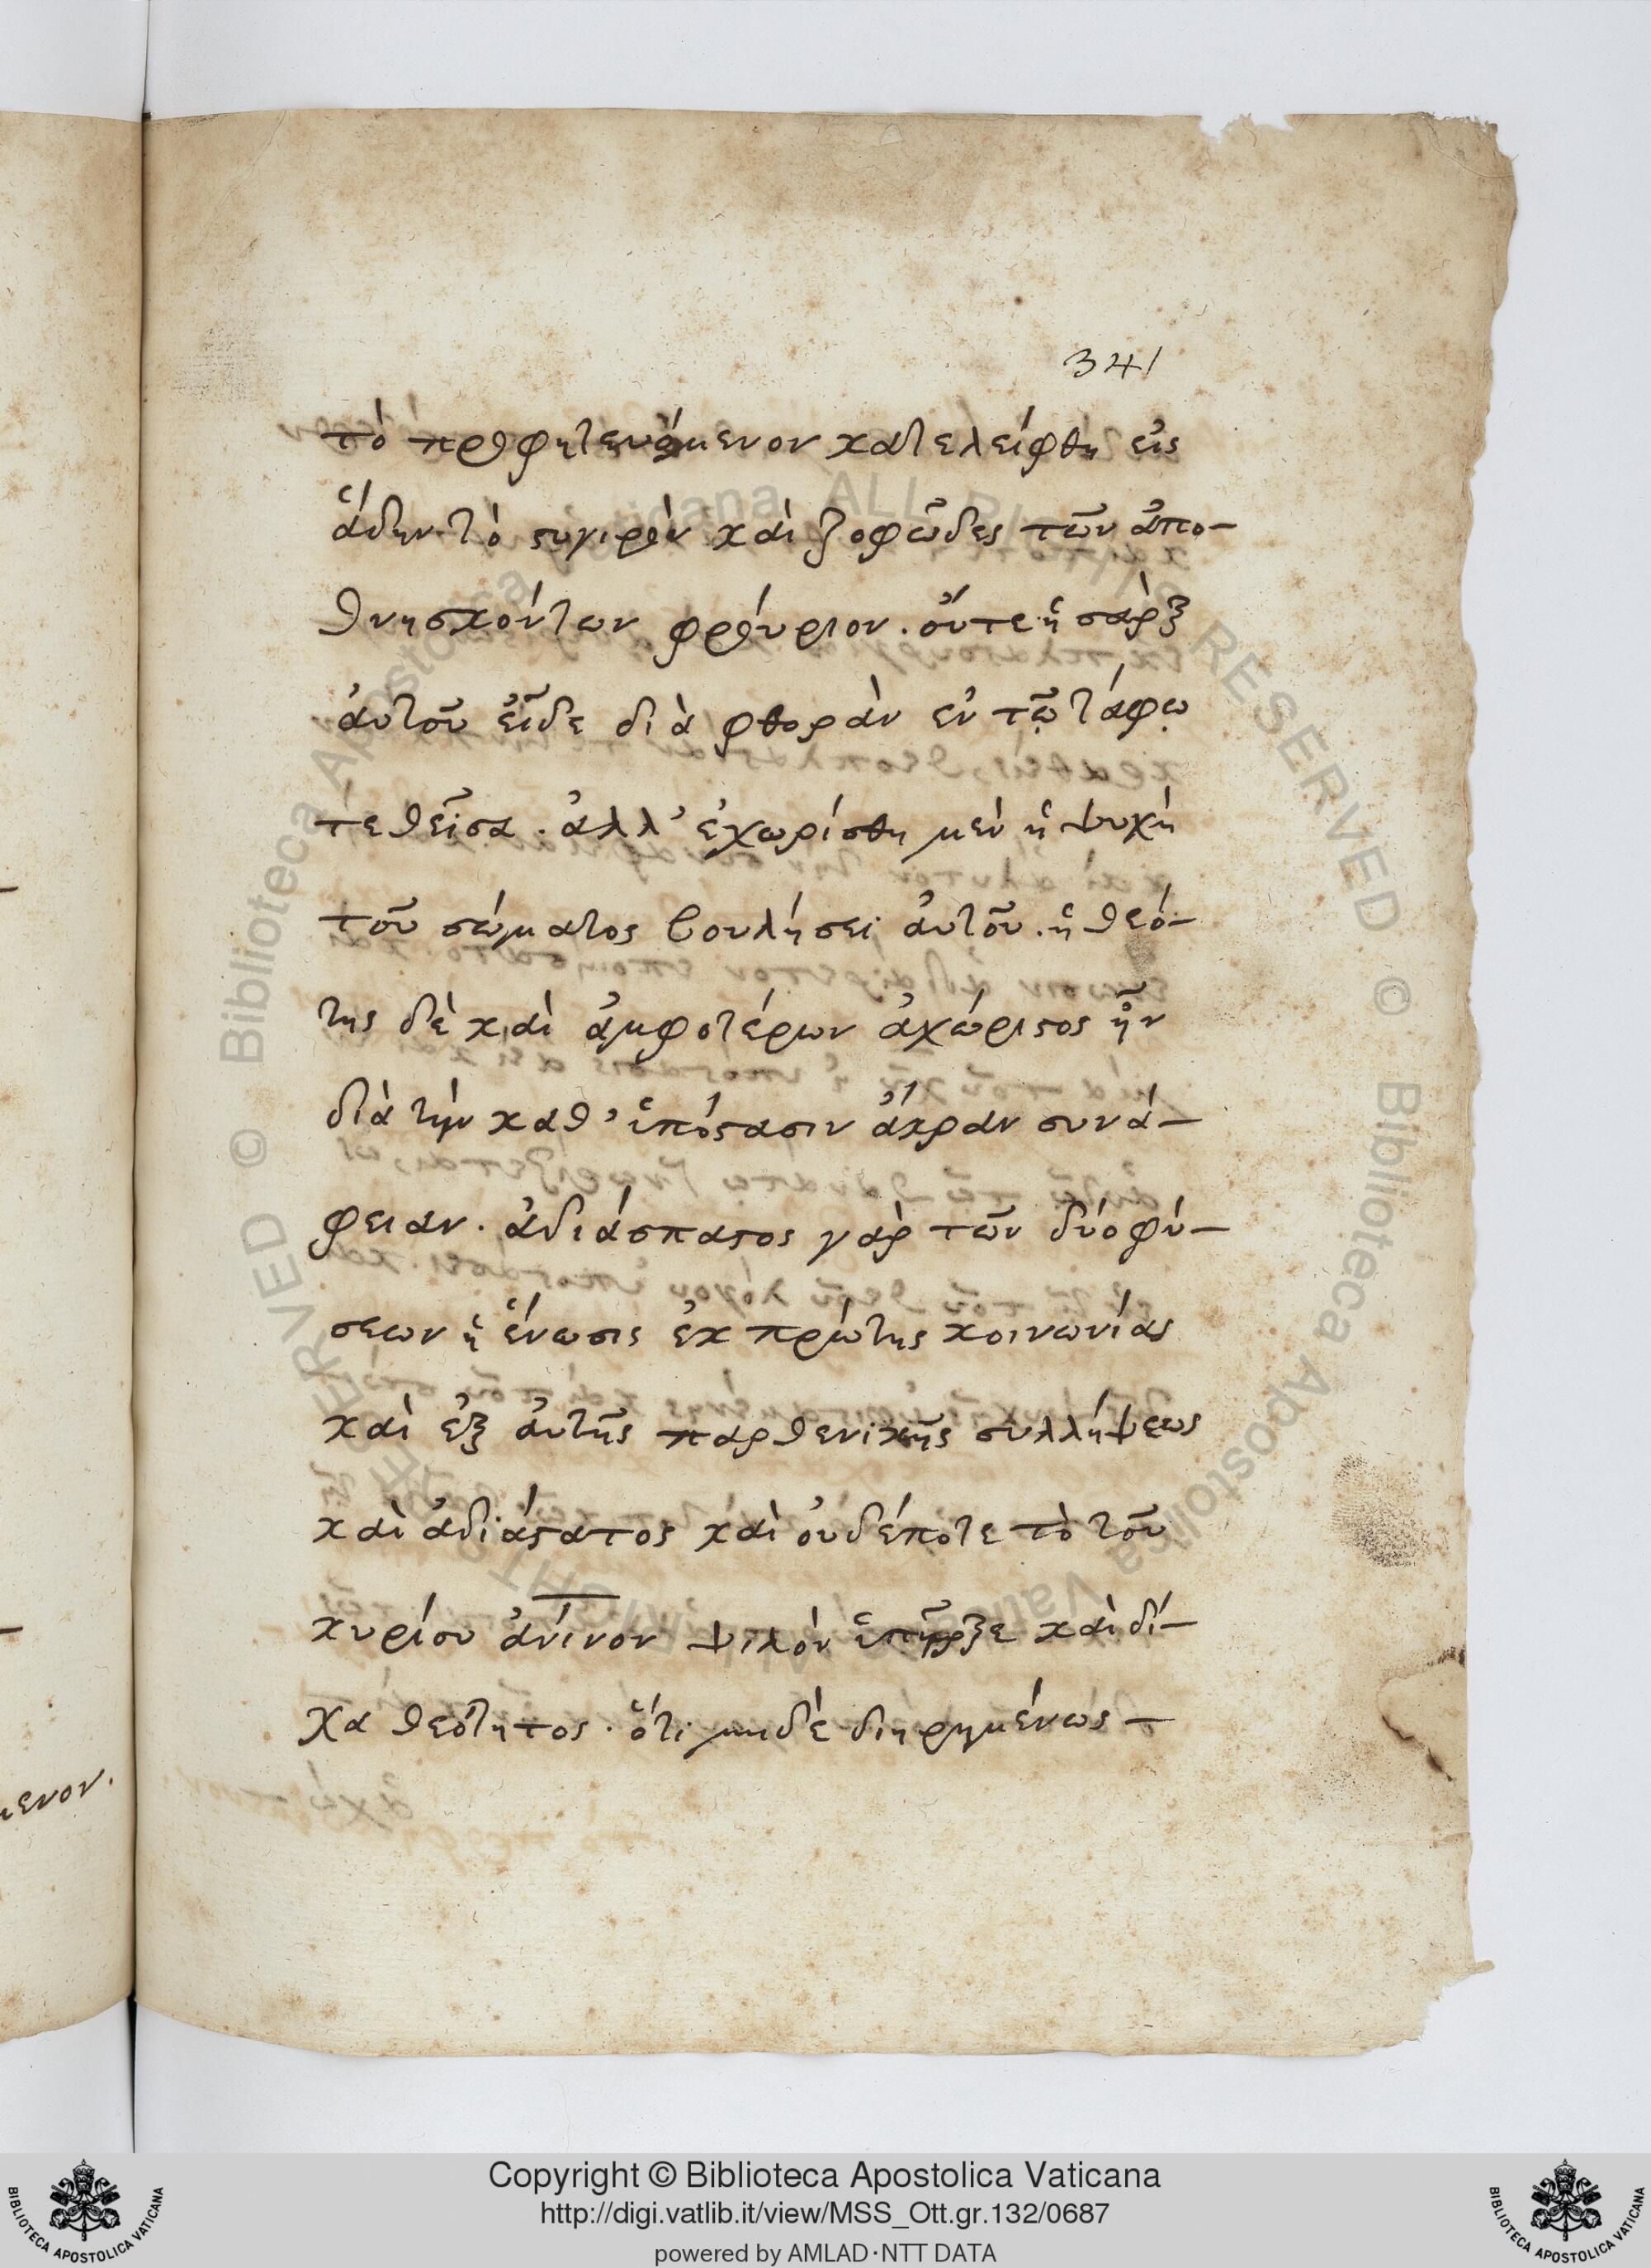 341
τὸ προφητευόμενον κατελείφθη εἰς
ἅδην τὸ στυγερὸν καὶ ζοφῶδες τῶν ἀπο-
θνησκόντων φρούριον. οὔτε ἡ σὰρξ
ἀυτοῦ εἶδε διὰ φθορὰν ἐν τῷ τάφῳ
τεθεῖσα. ἀλλ' ἐχωρίσθη μὲν ἡ ψυχὴ
τοῦ σώματος βουλήσει ἀυτοῦ. ἡ θεό-
της δὲ καὶ ἀμφοτέρων ἀχώριστος ἦν
διὰ τὴν καθ' ὑπόστασιν ἄκραν συνά-
φειαν. ἀδιάσπαστος γὰρ τῶν δύο φύ-
σεων ἡ ἕνωσις ἐκ πρώτης κοινωνίας
καὶ ἐξ ἀυτῆς παρθενικῆς συλλήψεως
καὶ ἀδιάστατος καὶ ὀυδέποτε τὸ τοῦ
κυρίου ἀνίνον ψιλὸν ὑπῆρξε καὶ δί-
χα θεότητος. ὅτι μηδὲ διηρημένως-
μενον.
Copyright © Biblioteca Apostolica Vaticana
http://digi.vatlib.it/view/MSS_Ott.gr.132/0687
powered by AMLAD·NTT DATA
BIBLIOTECA APOSTOLICA VATICANA
BIBLIOTECA APOSTOLICA VATICANA